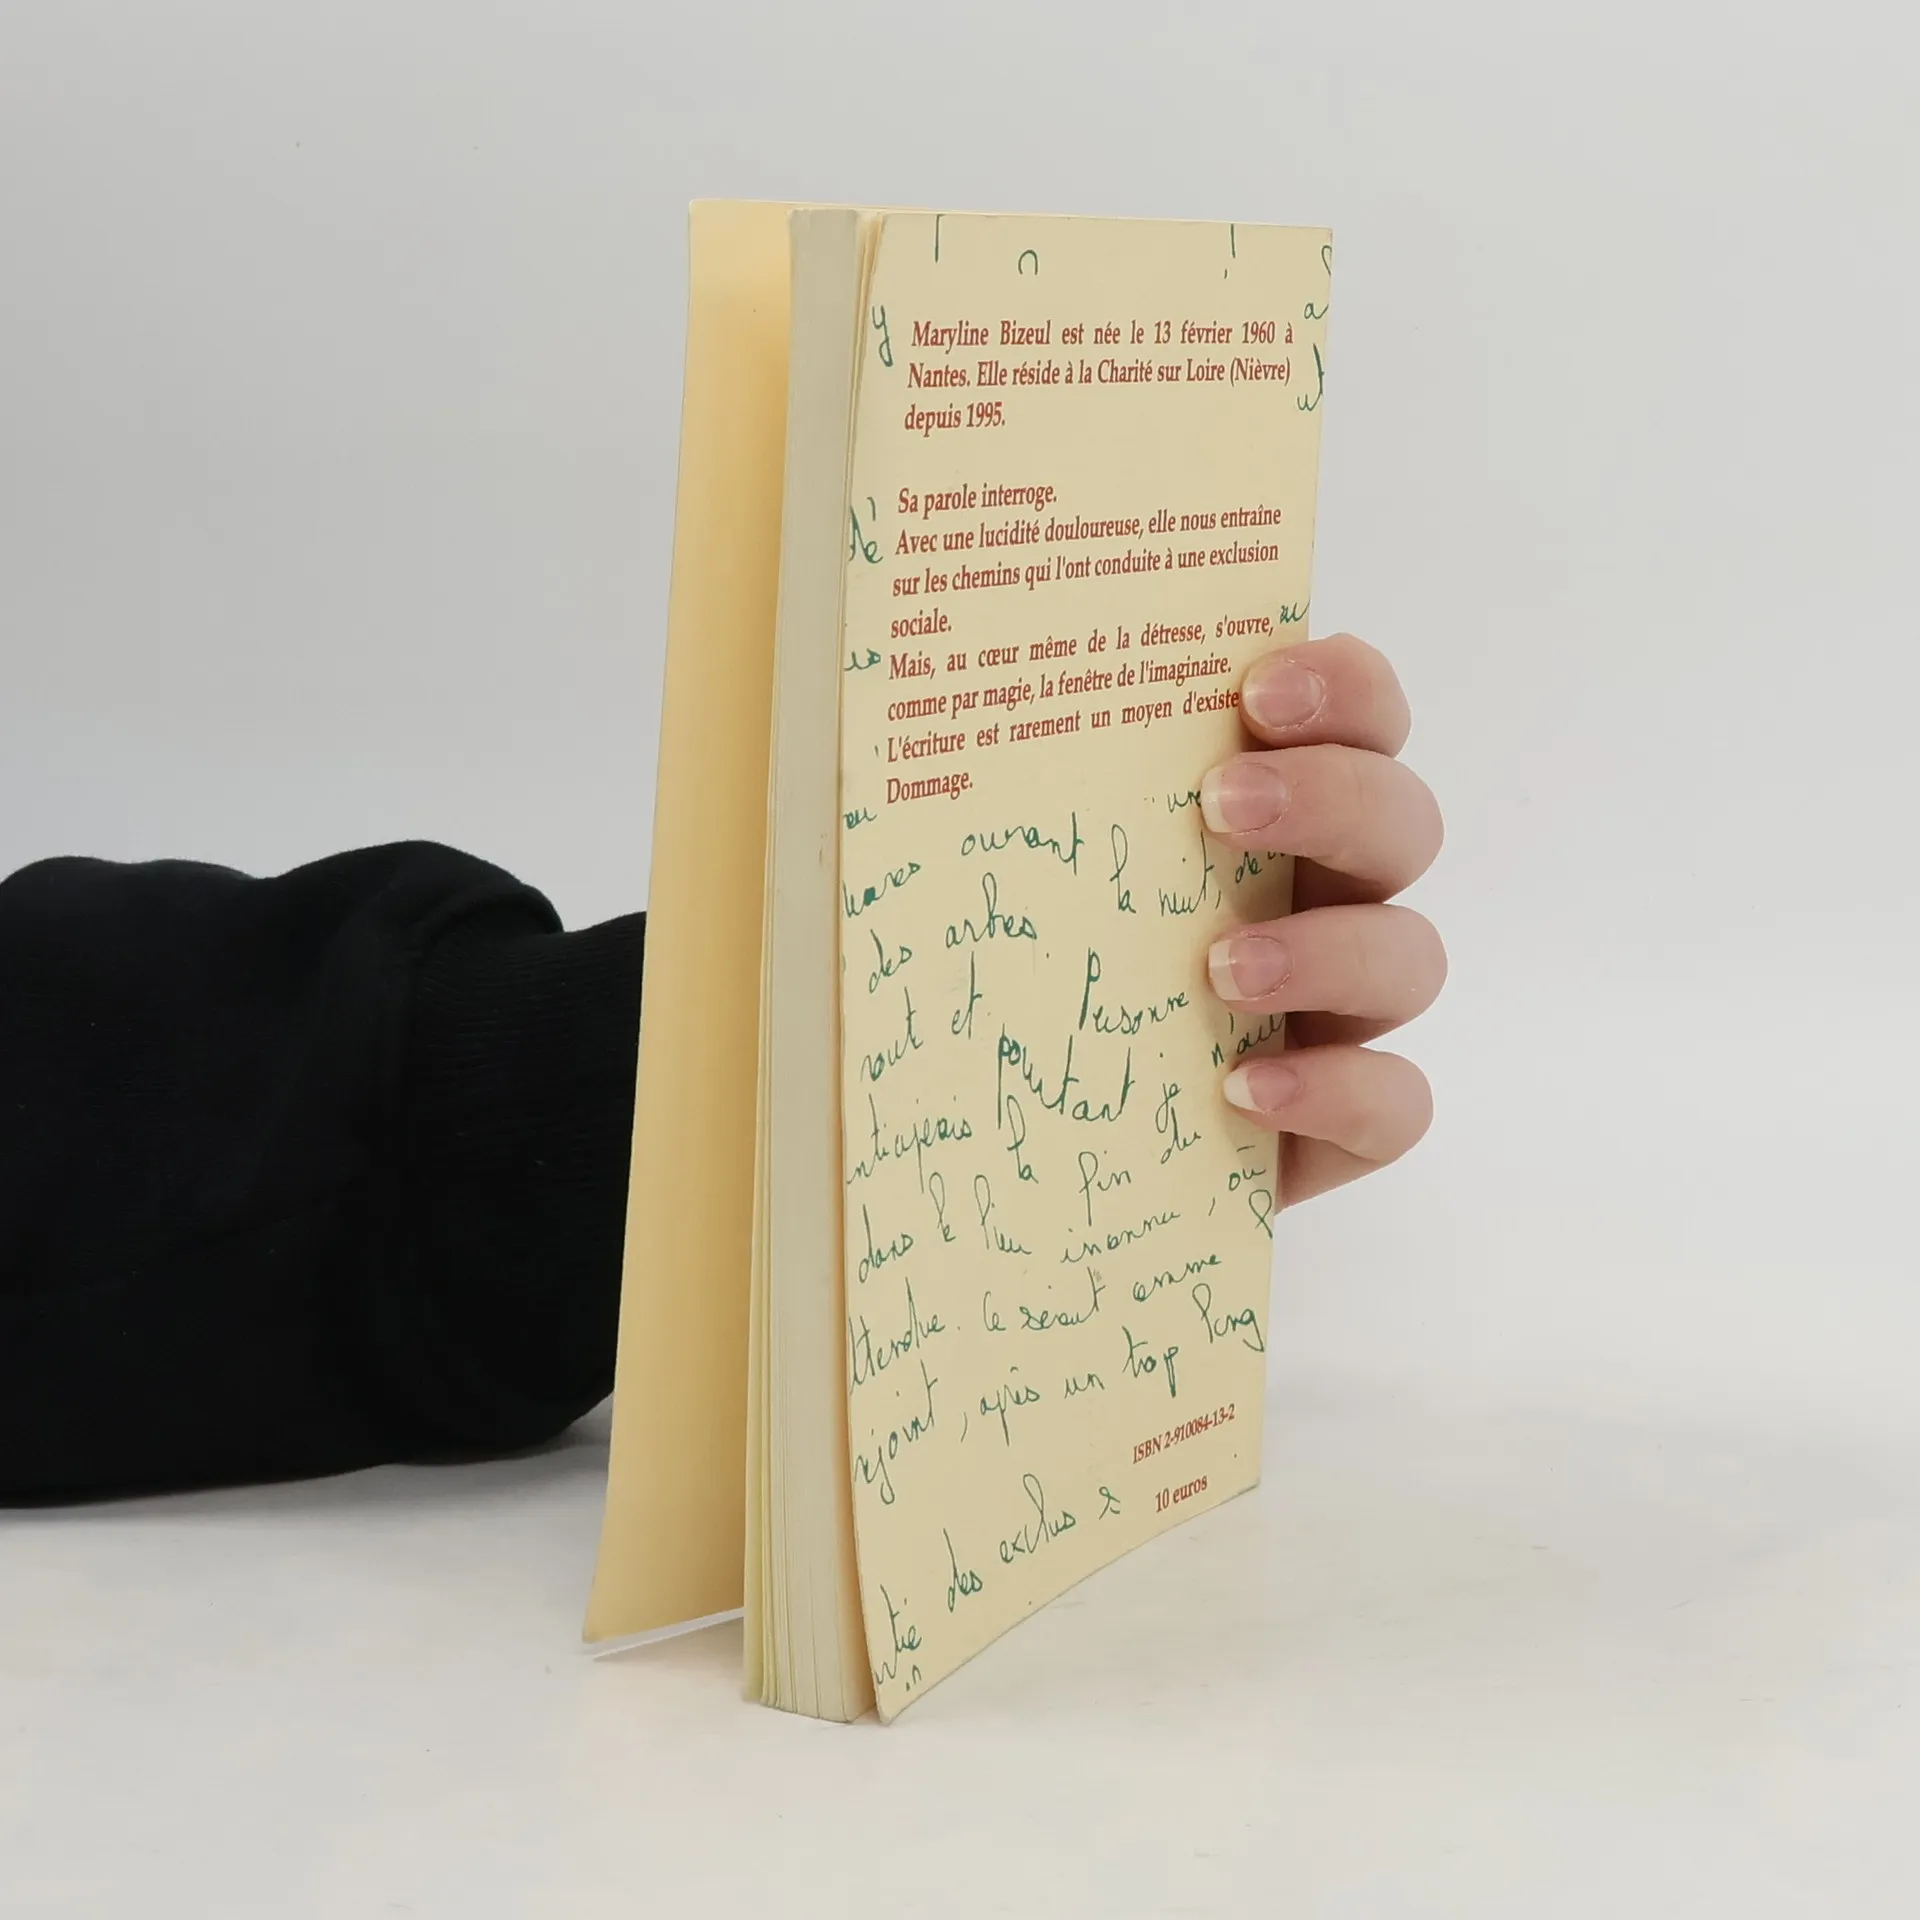 y
a
ut
Maryline Bizeul est née le 13 février 1960 à
Nantes. Elle réside à la Charité sur Loire (Nièvre)
depuis 1995.
Sa parole interroge.
de Avec une lucidité douloureuse, elle nous entraîne
sur les chemins qui l'ont conduite à une exclusion
sociale.
Mais, au cœur même de la détresse, s'ouvre, au
comme par magie, la fenêtre de l'imaginaire.
L'écriture est rarement un moyen d'existe
Dommage.
ouvrant la nuit, de
des arbres.
et Personne
pourtant je
la fin du
dans le lieu inconnu, où
Ce serait comme
après un trop long
ISBN 2-910084-13-2
des exclus 10 euros